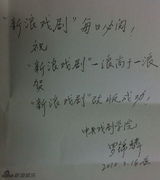 "新浪戏剧"每日必阅,
祝
"新浪戏剧"一浪高于一浪
祝
"新浪戏剧"改版成功,
中央戏剧学院
罗锦鳞
2010.3.16
新浪娱乐